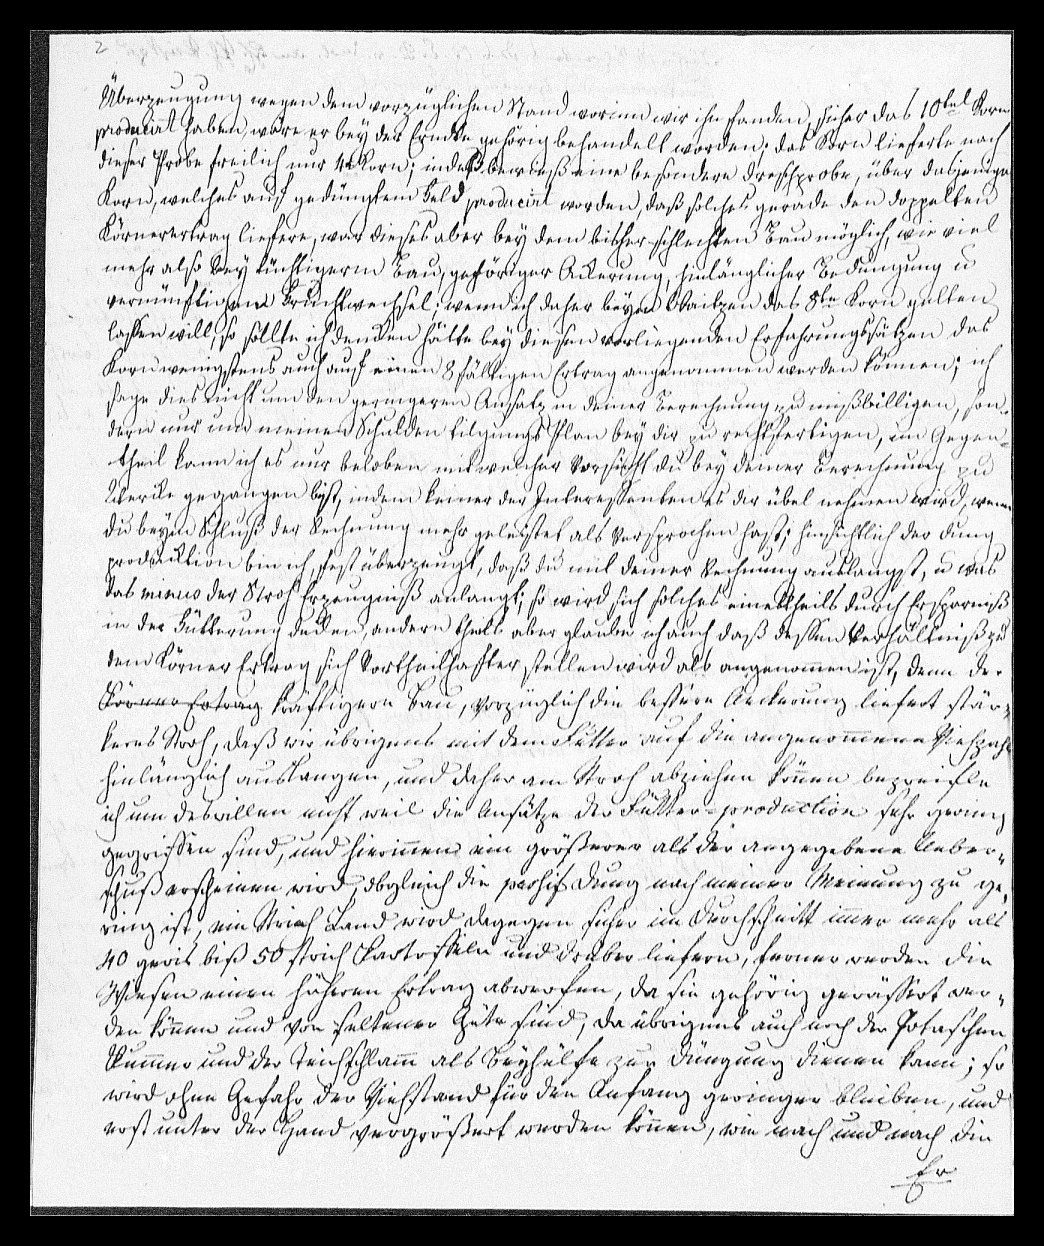 2
Überzeugung wegen dem vorzüglichen Stand worinn wir ihn fanden, sicher das 10tel Korn
producirt haben, wäre er bey der Erndte gehörig behandelt worden; das Korn lieferte nach
dieser Probe freilich nur 4 Korn; indeß bewieß eine besondere Dreschprobe, über dasjenige
Korn, welches auf gedüngtem Feld producirt worden, daß solches gerade den doppelten
Körnerertrag liefere, war dieses aber bey dem bisher schlechten Bau möglich, wie viel
mehr also bey tüchtigerm Bau, gehöriger Ackerung, hinlänglicher Bedüngung u
vernünftigem Fruchtwechsel; wenn ich daher beym Waitzen das 8te Korn gelten
lassen will, so sollte ich denken hätte bey diesen vorliegenden Erfahrungssätzen das
Korn wenigstens auch auf einen 8fältigen Ertrag angenommen werden können; ich
sage dies nicht um den geringeren Ansatz in deiner Berechnung zu mißbilligen, son-
dern nur um meinen Schulden tilgungs Plan bey dir zu rechtfertigen, im Gegen-
theil kann ich es nur beloben mit welcher Vorsicht du bey deiner Berechnung zu
Werke gegangen bist, indem keiner der Interessenten es dir übel nehmen wird, wenn
du beym Schluß der Rechnung mehr geleistet als versprochen hast; hinsichtlich der Dung
production bin ich fest überzeugt, daß du mit deiner Rechnung auslangst, u was
das minus der Stroh Erzeugniß anlangt; so wird sich solches eines theils durch Ersparniß
in der Fütterung decken, andern theils aber glaube ich auch daß dessen Verhältniß zu
dem Körner Ertrag sich vortheilhafter stellen wird als angenommen ist, denn der
Körner Ertrag kräftigere Bau, vorzüglich die bessere Ackerung liefert stär-
keres Stroh, daß wir übrigens mit dem Futter auf die angenommene Viehzahl
hinlänglich auslangen, und daher am Stroh abziehen können bezweifle
ich um deswillen nicht weil die Ansätze der Futter-production sehr gering
gegriffen sind, und hierinnen ein größerer als der angegebene Ueber-
schuß erscheinen wird, obgleich die Dung nach meiner Meinung zu ge-
ring ist, ein Strich Land wird dagegen sicher im Durchschnitt immer mehr als
40 gewis biß 50 Strich Kartoffeln und drüber liefern, ferner werden die
Wiesen einen höheren Ertrag abwerfen, da sie gehörig gewässert wer-
den können und von seltener Güte sind, da übrigens auch noch der Potaschen
und der Teichschlamm als Beyhülfe zur Düngung dienen kann; so
wird ohne Gefahr der Viehstand für den Anfang geringer bleiben, und
erst unter der Hand vergrößert werden können, wie nach und nach die
Er